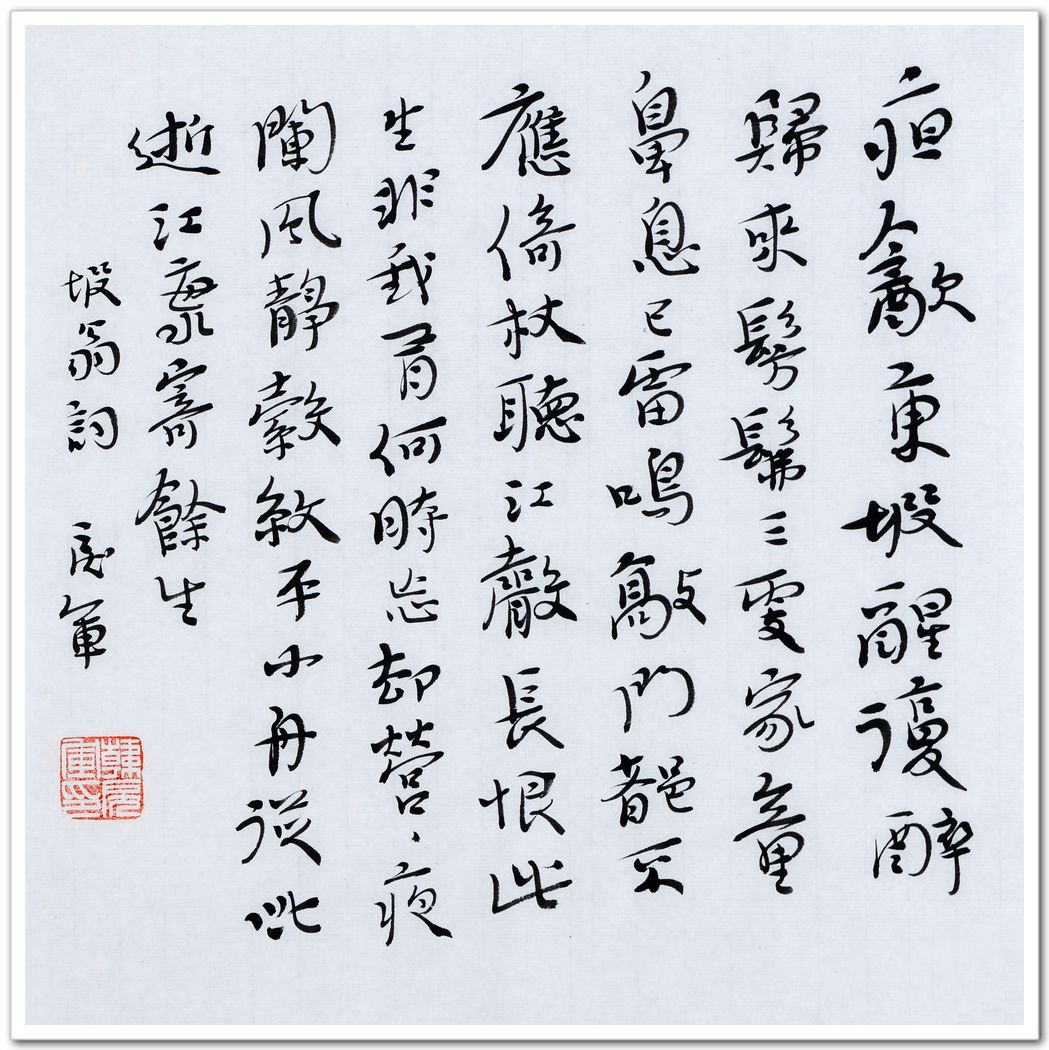 夜飲東坡醒復醉
歸來髣髴三更家童
鼻息已雷鳴敲門都不
應倚杖聽江聲長恨此
生非我有何時忘却營〻夜
闌風靜縠紋平小舟從此
逝江海寄餘生
坡翁詞 軍